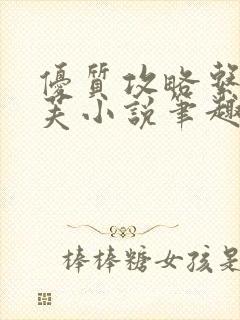 優質攻略系
夫小說筆趣
棒棒糖女孩是